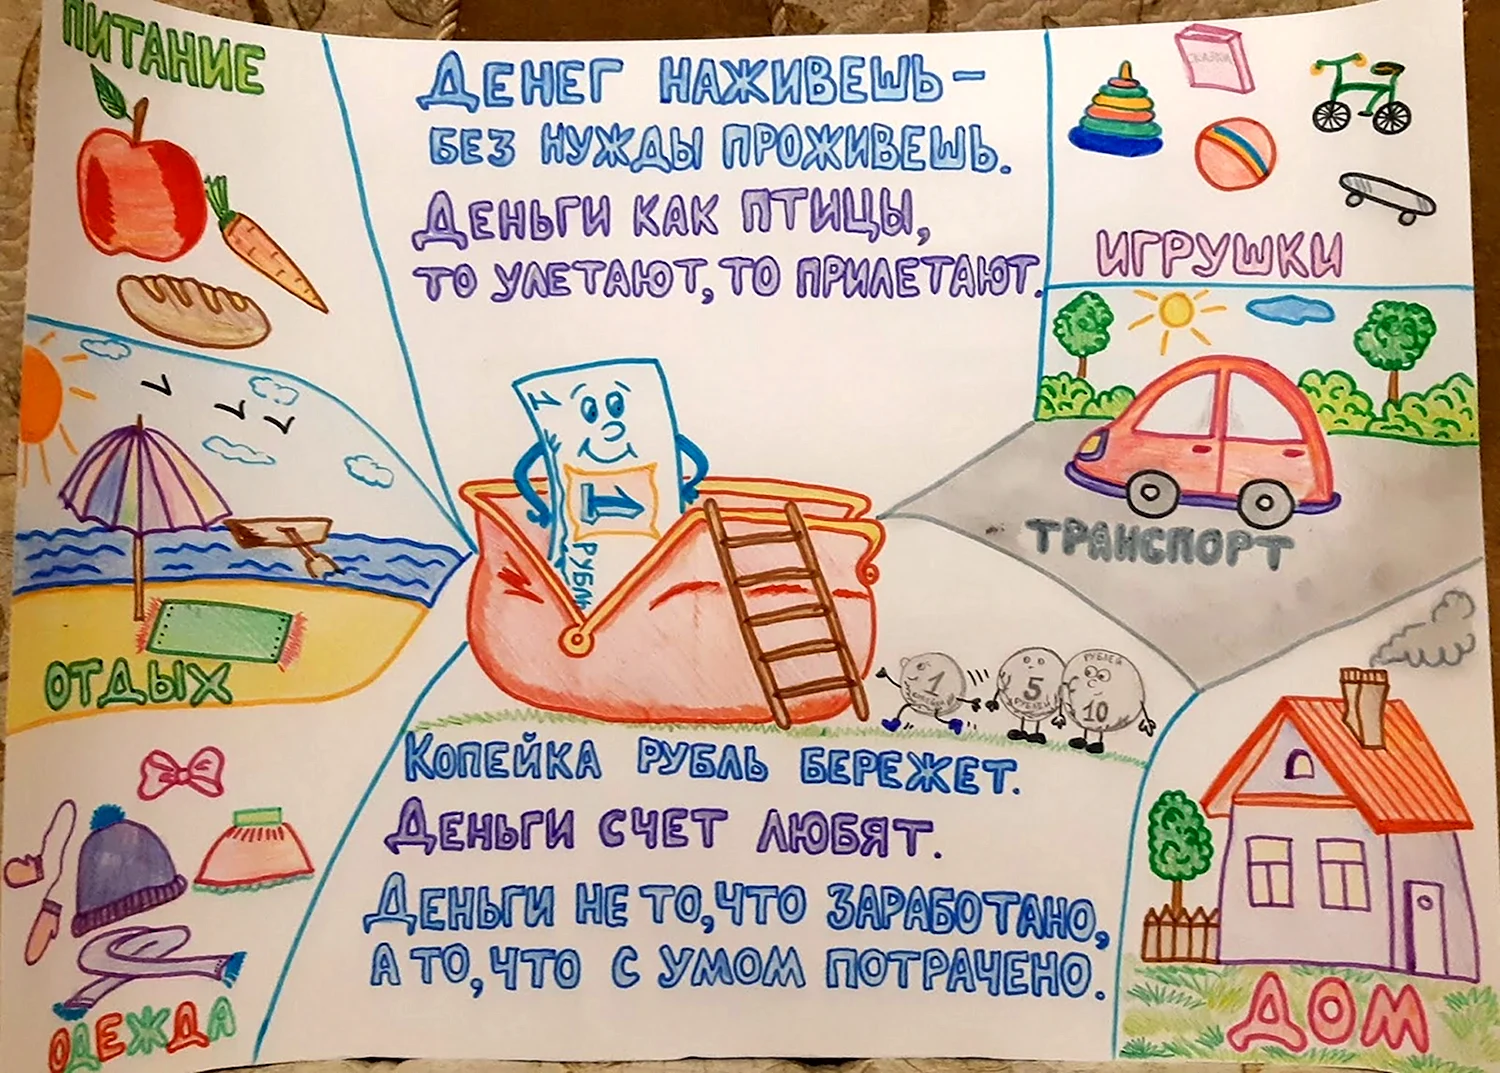 ПИТАНИЕ
ДЕНЕГ НАЖИВЕШЬ –
БЕЗ НУЖДЫ ПРОЖИВЕШЬ.
ДЕНЬГИ КАК ПТИЦЫ,
ТО УЛЕТАЮТ, ТО ПРИЛЕТАЮТ.
СКАЗКИ
ИГРУШКИ
ТРАНСПОРТ
1
1
РУБЛЬ
ОТДЫХ
1
КОПЕЙКА
5
РУБЛЕЙ
РУБЛЕЙ
10
КОПЕЙКА РУБЛЬ БЕРЕЖЕТ.
ДЕНЬГИ СЧЕТ ЛЮБЯТ.
ДЕНЬГИ НЕ ТО, ЧТО ЗАРАБОТАНО,
А ТО, ЧТО С УМОМ ПОТРАЧЕНО.
ОДЕЖДА
ДОМ